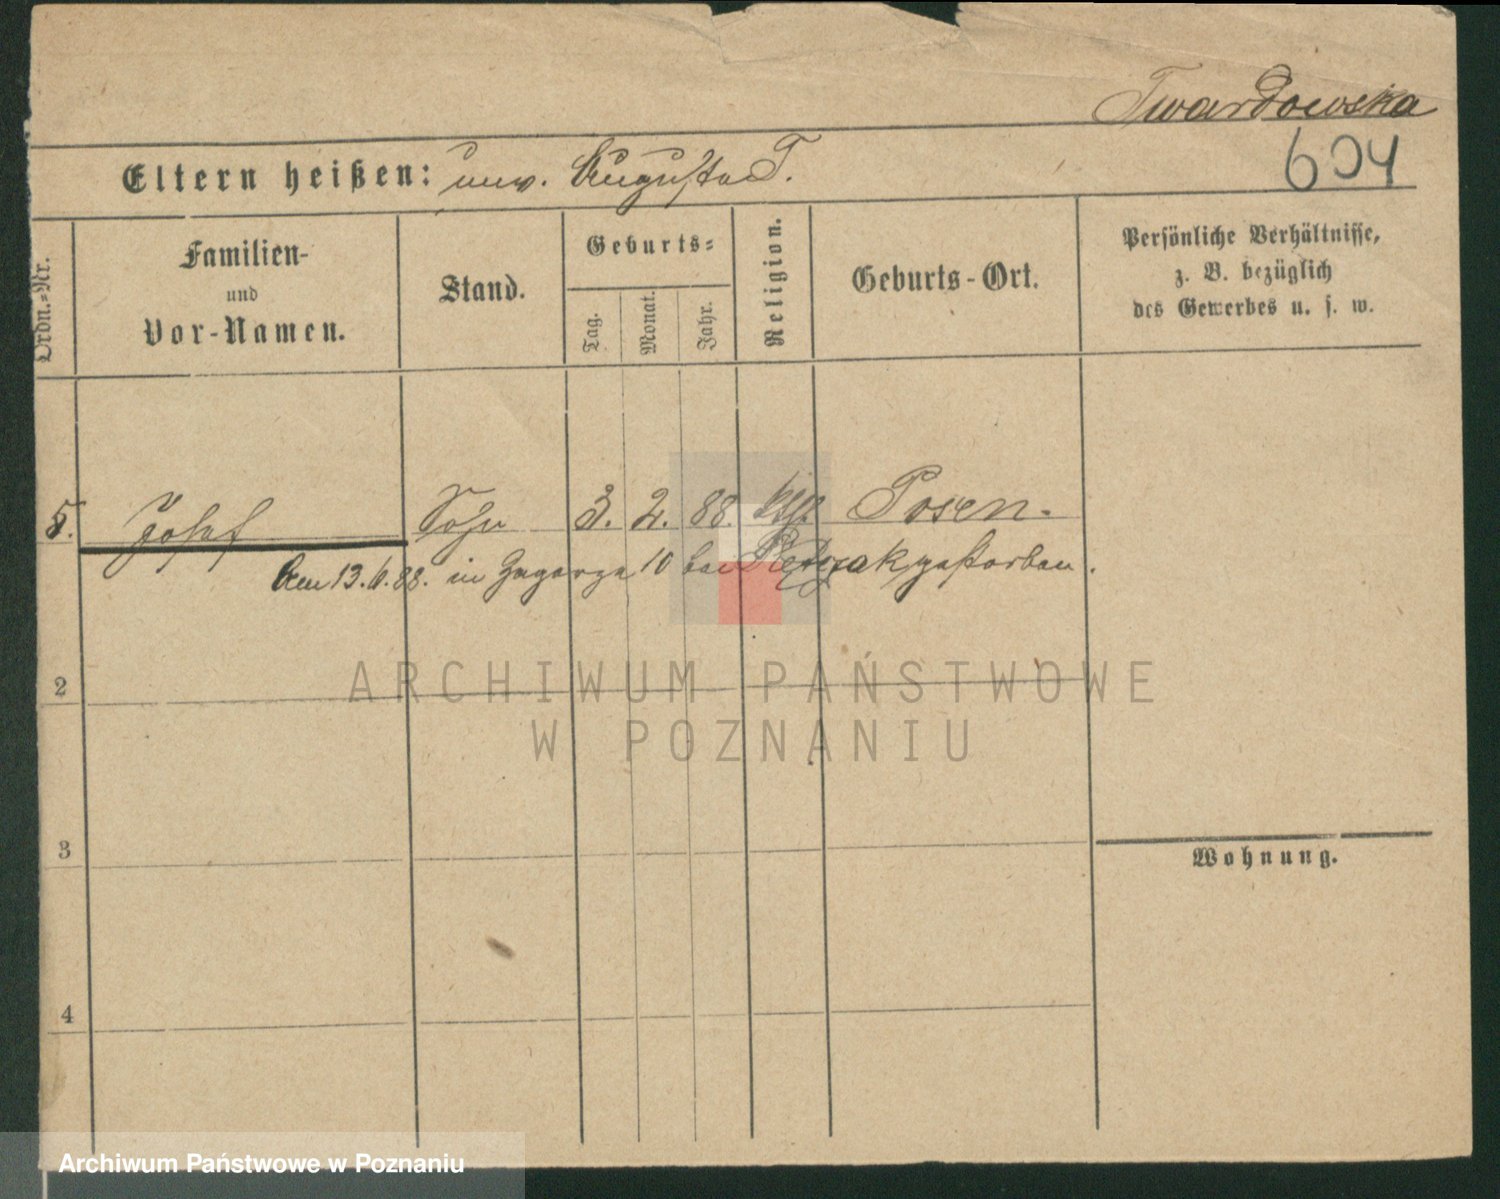 Twardowska
604
Eltern heißen: unv. Auguste T.
Ordn.=Nr.
Familien-
und
Vor-Namen.
Stand.
Geburts=
Tag.
Monat.
Jahr.
Religion.
Geburts-Ort.
Persönliche Verhältnisse,
z. B. bezüglich
des Gewerbes u. s. w.
5. Josef Sohn 3. 2. 88. kth. Posen.
Am 13.6.88. in Zagorze 10 bei gestorben.
2
3
Wohnung.
4
ARCHIWUM PAŃSTWOWE
W POZNANIU
Archiwum Państwowe w Poznaniu